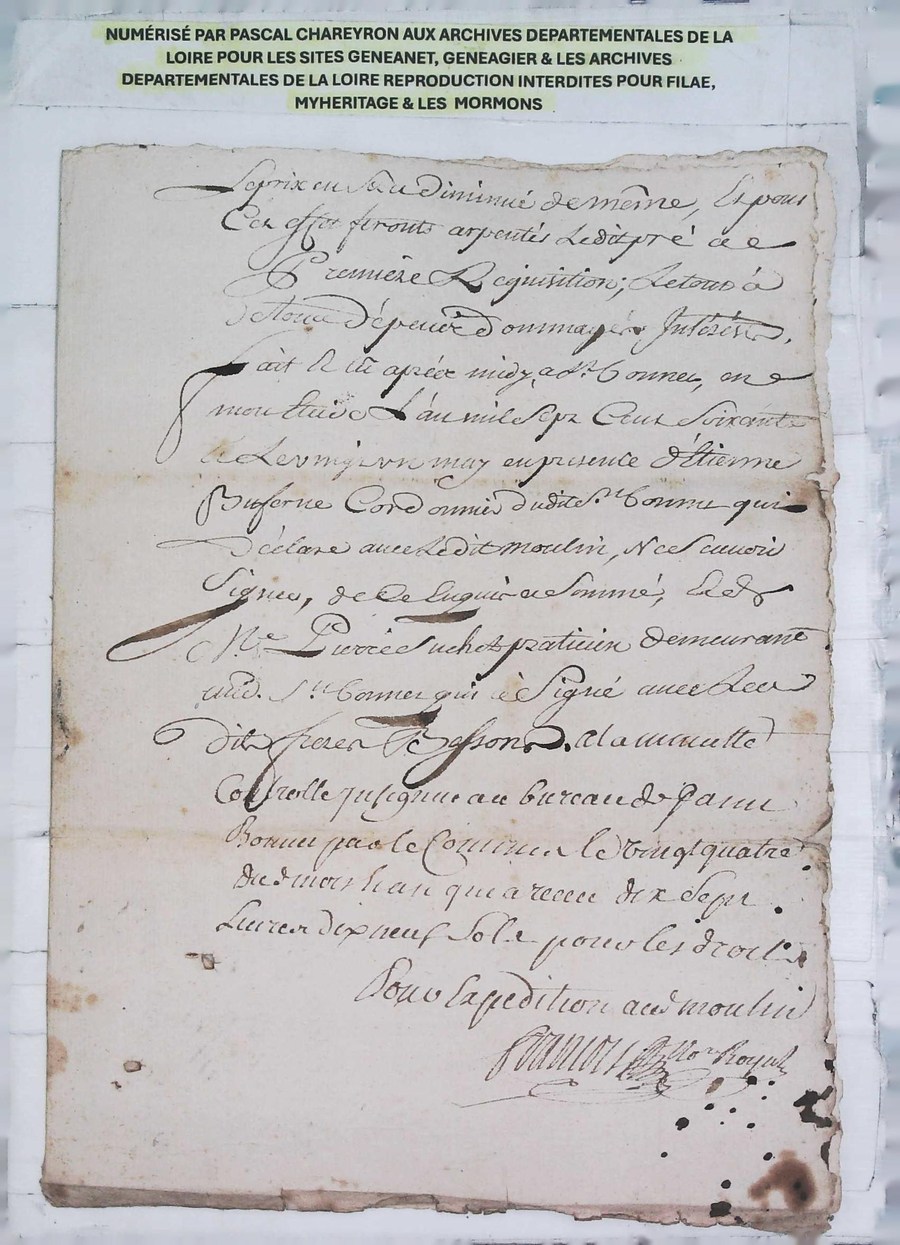 NUMÉRISÉ PAR PASCAL CHAREYRON AUX ARCHIVES DEPARTEMENTALES DE LA
LOIRE POUR LES SITES GENEANET, GENEAGIER & LES ARCHIVES
DEPARTEMENTALES DE LA LOIRE REPRODUCTION INTERDITES POUR FILAE,
MYHERITAGE & LES MORMONS
Le prix en diminué de même, Et pour
Cet effet seront arpentés Ledit pré a
Premiere Requisition; Le tout à
d'épens Dommages Intérêts.
Fait & lû après midy, a St. Bonnet, en
mon Etude L'an mil Sept Cent Soixante
Le vingt un may en presence d'Etienne
Cordonnier dudit St. Bonnet qui
Déclare avec Ledit moulin, Ne Scavoir
Signer, de Ce Enquis et Sommé, Et de
Me. Pierre Suchet praticien demeurant
aud. St. Bonnet qui à Signé avec Les
dits freres Besson. a la minutte
Controllé Insignué au bureau de St.
Bonnet par le Commis le vingt quatre
dud mois qui a receu dix Sept
Livres dix neuf Sols pour les droits
Pour Expedition aud moulin
Nore. Royal